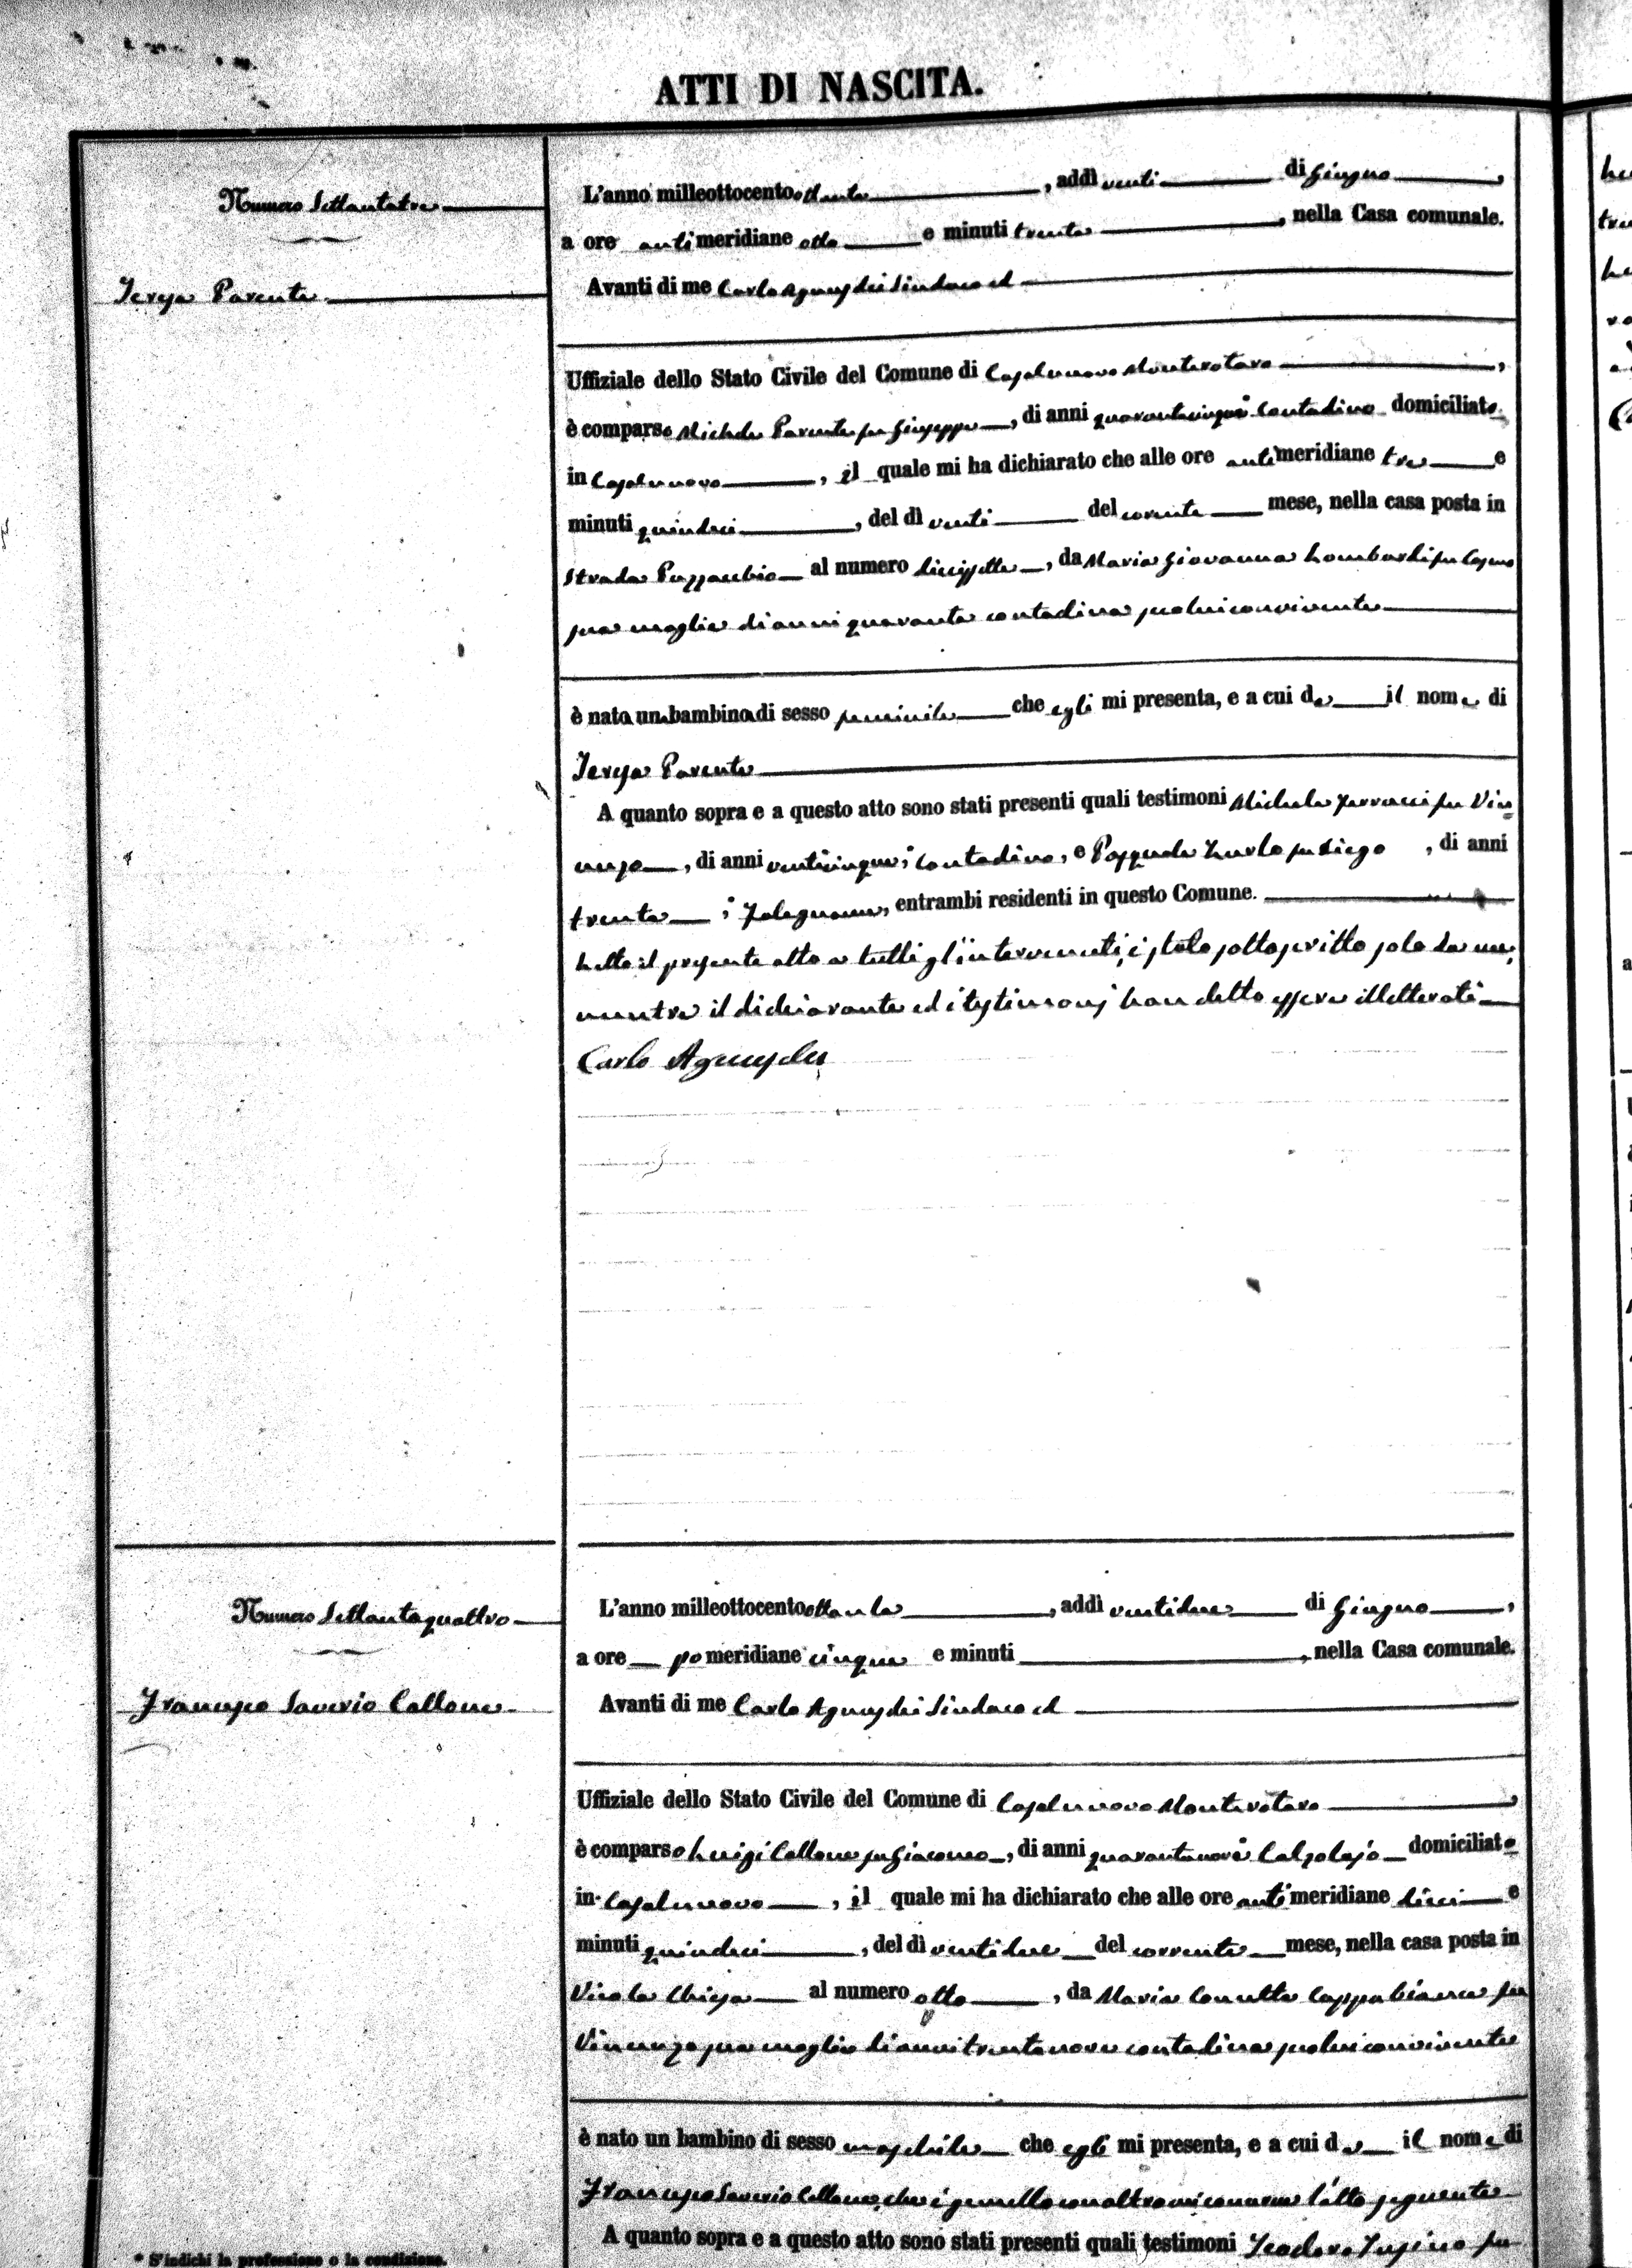 ATTI DI NASCITA.
Numero Settantatre
Teresa Parente
L'anno milleottocentoottanta, addì venti di Giugno,
a ore antimeridiane otto e minuti trenta, nella Casa comunale.
Avanti di me Carlo Agnusdei Sindaco ed
Uffiziale dello Stato Civile del Comune di Casalnuovo Monterotaro,
è comparso Michele Parente fu Giuseppe, di anni quarantacinque contadino domiciliato
in Casalnuovo, il quale mi ha dichiarato che alle ore antimeridiane tre e
minuti quindici, del dì venti del corrente mese, nella casa posta in
Strada Pozzacchio al numero diecissette, da Maria Giovanna Lombardi fu Cosmo
sua moglie di anni quaranta contadina seco lui convivente
è nata una bambina di sesso feminile che egli mi presenta, e a cui da il nome di
Teresa Parente
A quanto sopra e a questo atto sono stati presenti quali testimoni Michele fu Vin=
cenzo, di anni venticinque, contadino, e Pasquale Zurlo fu Diego, di anni
trenta, Falegname, entrambi residenti in questo Comune.
Letto il presente atto a tutti gl'intervenuti, è stato sottoscritto solo da me,
mentre il dichiarante ed i testimonj han detto essere illetterati
Carlo Agnusdei
Numero Settantaquattro
Francesco Saverio Callone
L'anno milleottocentoottanta, addì ventidue di Giugno,
a ore pomeridiane cinque e minuti, nella Casa comunale.
Avanti di me Carlo Agnusdei Sindaco ed
Uffiziale dello Stato Civile del Comune di Casalnuovo Monterotaro,
è comparso Luigi Callone fu Giacomo, di anni quarantanove Calzolajo domiciliato
in Casalnuovo, il quale mi ha dichiarato che alle ore antimeridiane dieci e
minuti quindici, del dì ventidue del corrente mese, nella casa posta in
Vicolo Chiesa al numero otto, da Maria Concetta Cappabianca fu
Vincenzo sua moglie di anni trentanove contadina seco lui convivente
è nato un bambino di sesso maschile che egli mi presenta, e a cui da il nome di
Francesco Saverio Callone, che è gemello con altro mi concerne l'atto seguente
A quanto sopra e a questo atto sono stati presenti quali testimoni Teodoro fu
* S'indichi la professione o la condizione.